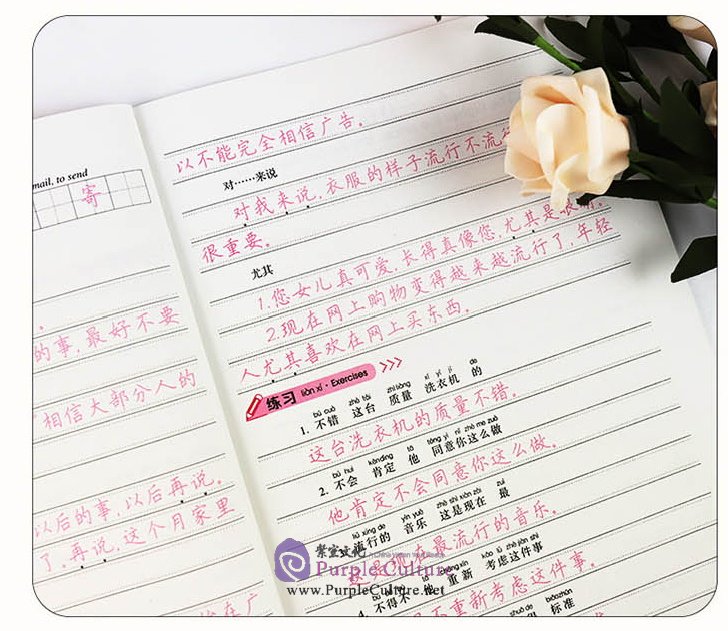 mail, to send
寄
的事，最好不要
相信大部分人的
以后的事，以后再说。
了。再说，这个月家里
以不能完全相信广告。
对……来说
对我来说，衣服的样子流行不流
很重要。
尤其
1.您女儿真可爱，长得真像您，尤其是
2.现在网上购物变得越来越流行了，年轻
人尤其喜欢在网上买东西。
练习 liàn xí · Exercises
bú cuò zhè tái zhì liàng xǐ yī jī de
1. 不错 这台 质量 洗衣机 的
这台洗衣机的质量不错。
bú huì kěndìng tā tóng yì nǐ zhè me zuò
2. 不会 肯定 他 同意你这么做
他肯定不会同意你这么做。
liú xíng de yīn yuè zhè shì xiàn zài zuì
流行的 音乐 这是现在 最
最流行的音乐。
kǎo lǜ zhè jiàn shì
4. 不得不 他 重新 考虑这件事
不重新考虑这件事。
biāozhǔn
标准
紫室文化
Purple Culture
www.PurpleCulture.net